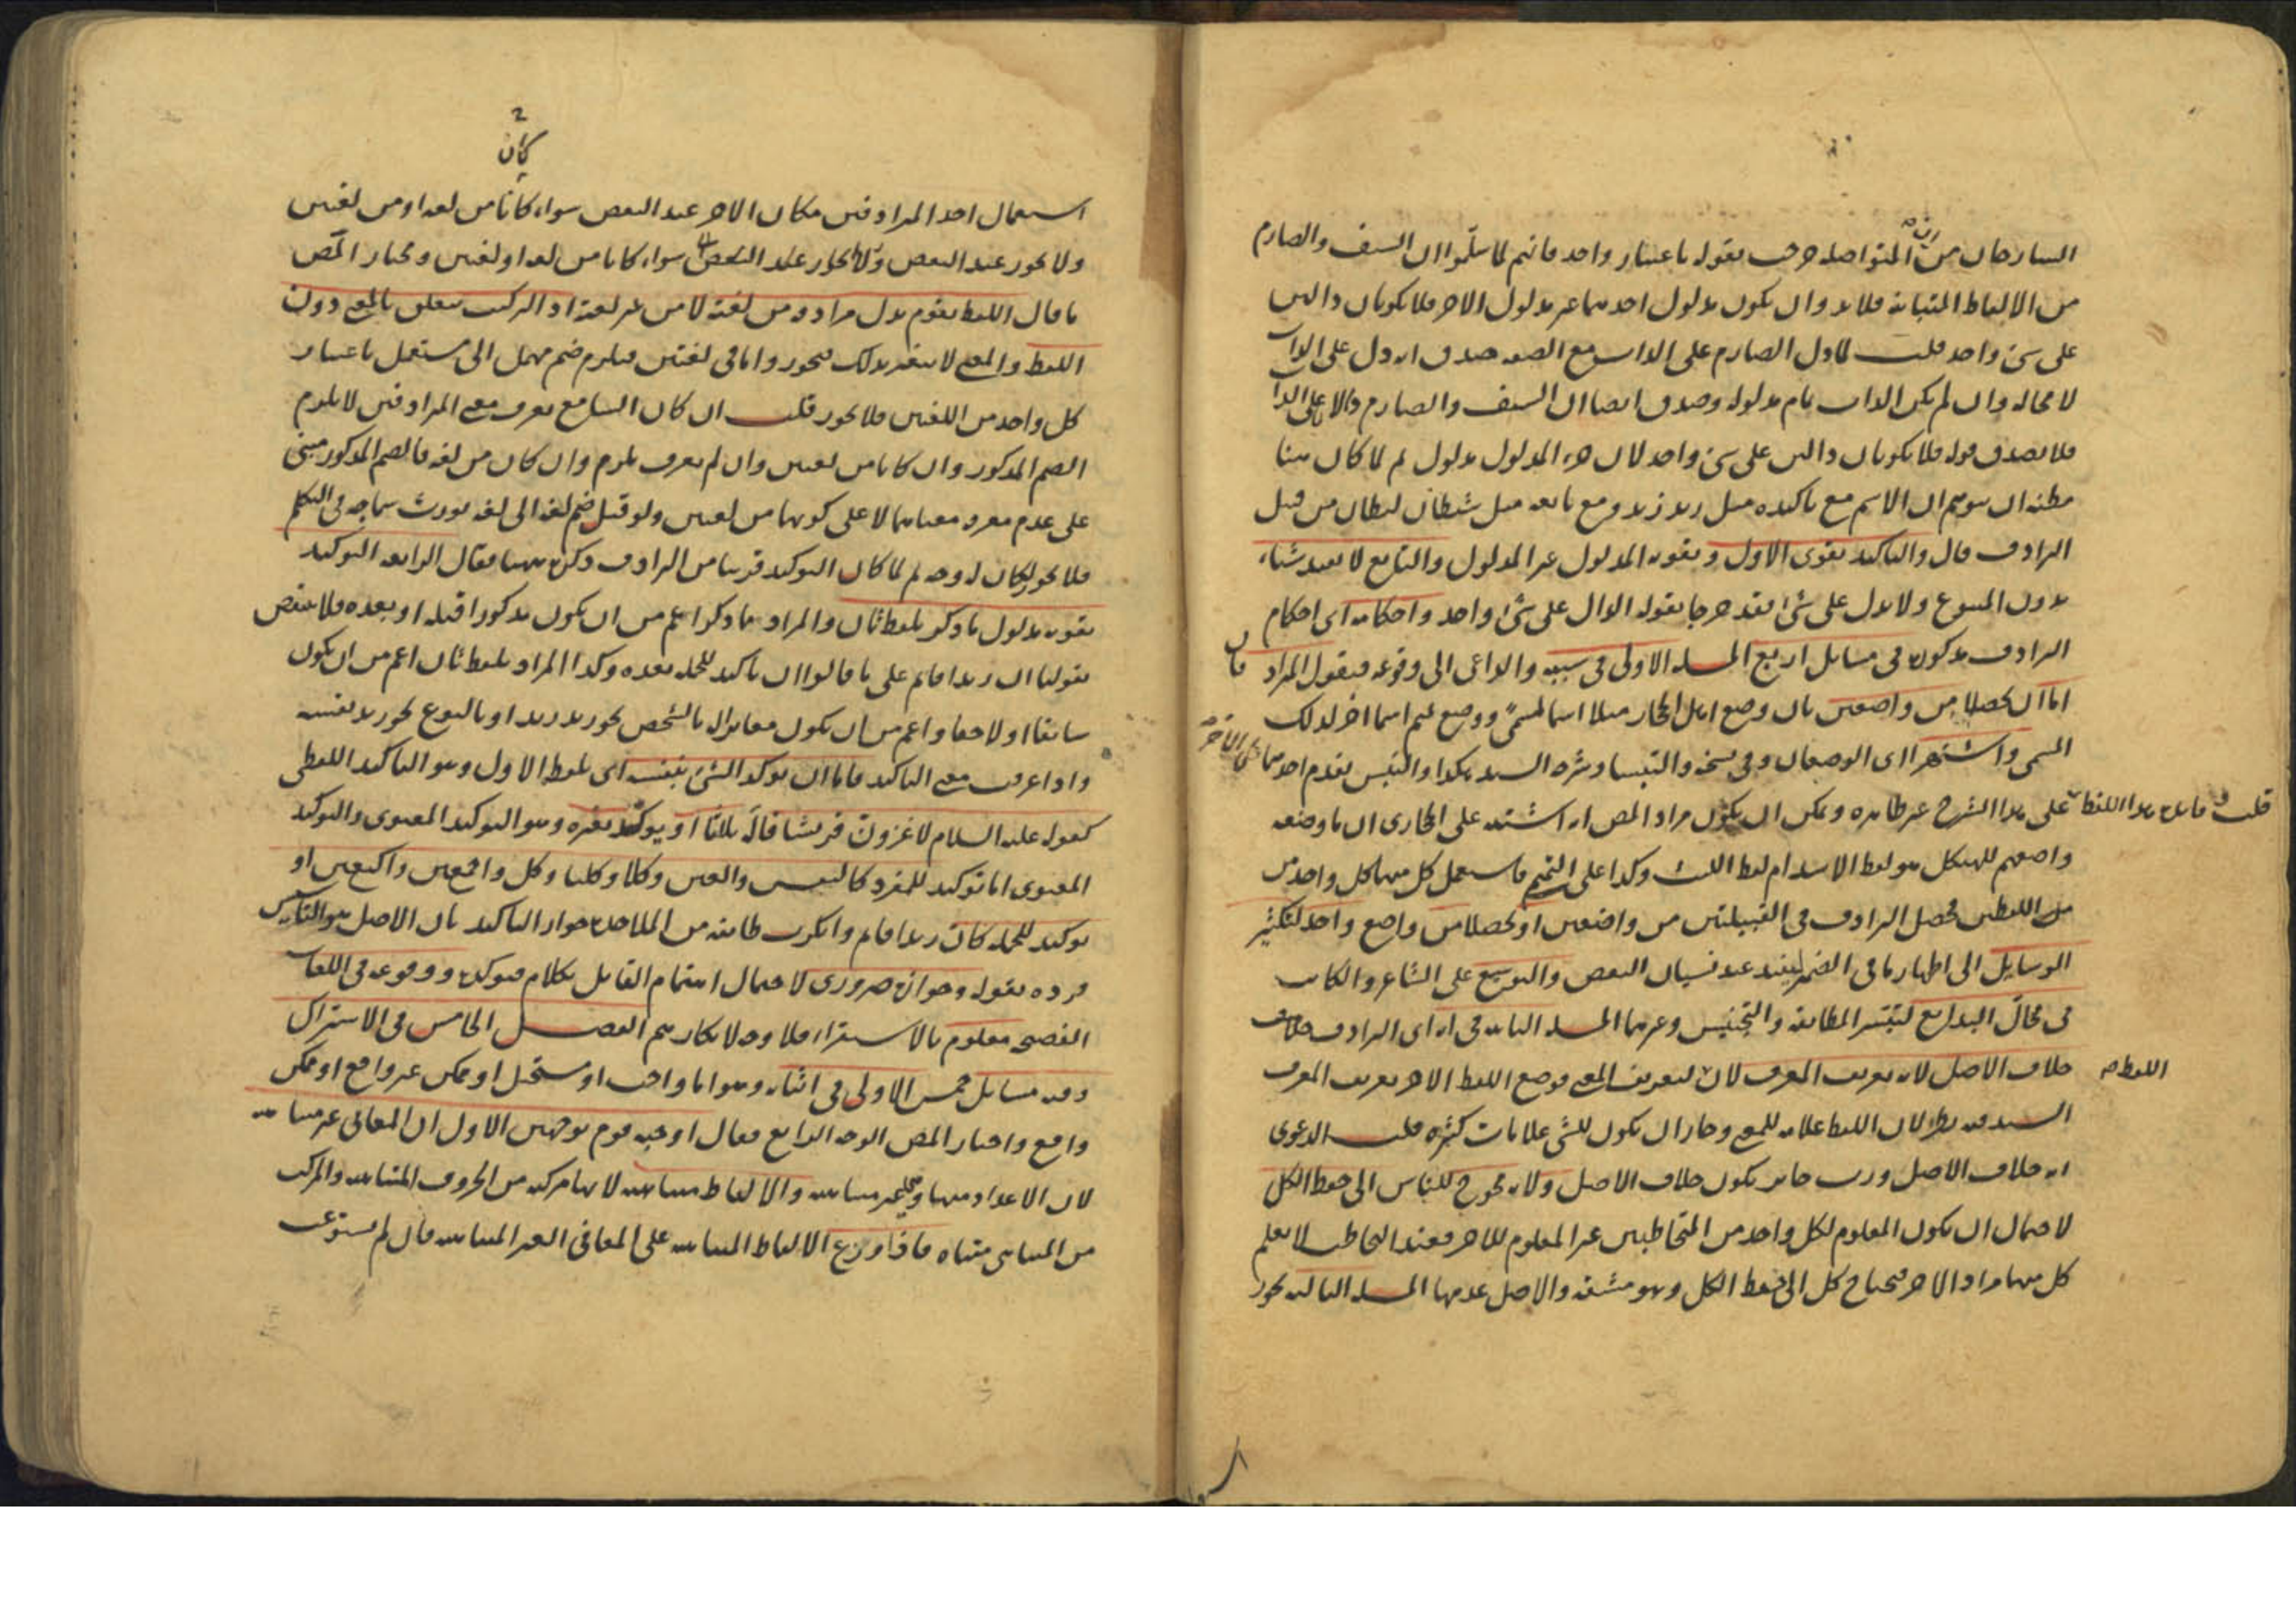 السارحان من المتواصله خرجت بقوله باعتبار واحد فانهم لما سلموا ان السيف والصارم
من الالفاظ المتباينة فلا بد وان يكون مدلول احدهما غير مدلول الاخر فلا يكونان دالين
على شئ واحد قلت لما دل الصارم على الذات مع الصفة صدق انه دل على الذات
لا محالة وان لم يكن الذات تمام مدلوله وصدق ايضا ان السيف والصارم دالان على الذات
فلا يصدق قوله فلا يكونان دالين على شئ واحد لان جزء المدلول مدلول ثم لما كان هنا
مظنة ان يتوهم ان الاسم مع تأكيده مثل زيد زيد ومع تابعه مثل شيطان ليطان من قبيل
الترادف قال والتأكيد يقوى الاول ويقويه المدلول غير المدلول والتابع لا يفيد شيئا
بدون المتبوع ولا يدل على شئ فقد خرجا بقوله الدال على شئ واحد واحكامه اى احكام
الترادف مذكورة فى مسائل اربع المسئلة الاولى فى سببه والداعى الى وقوعه فيقول المراد فان
اما ان يحصلا من واضعين بان وضع اهل الحجاز مثلا اسما لمسمى ووضع تميم اسما اخر لذلك
المسمى واشتهرا اى الوضعان وفى نسخة والتبسا وشرحه السيد هكذا والتبس تقدم احدهما على الاخر
قلت فائدة هذا اللفظ على هذا الشرح غير ظاهرة ويمكن ان يكون مراد المص انه اشتبه على الحجازى ان ما وضعه
واضعهم للهيكل هو لفظ الاسد ام لفظ الليث وكذا على التميم فاستعمل كل منهما كل واحد من
من اللفظين فحصل الترادف فى القبيلتين من واضعين او يحصلا من واضع واحد لتكثير
الوسايل الى اظهار ما فى الضمير ليفيد عند نسيان البعض والتوسيع على الشاعر والكاتب
فى مجال البدايع لتيسر المطابقة والتجنيس وغيرهما المسئلة الثانية فى انه اى الترادف خلاف
خلاف الاصل لانه تعريف المعرف لان اللفظ لتعريف المعنى فوضع اللفظ الاخر تعريف المعرف
السيد فيه نظر لان اللفظ علامة للمعنى وجاز ان يكون للشئ علامات كثيرة قلت الدعوى
انه خلاف الاصل ورب جائز يكون خلاف الاصل ولانه محوج للناس الى حفظ الكل
لاحتمال ان يكون المعلوم لكل واحد من المتخاطبين غير المعلوم للاخر فعند التخاطب لا يعلم
كل منهما مراد الاخر فيحتاج كل الى حفظ الكل وهو مشقة والاصل عدمها المسئلة الثالثة يجوز
كان
استعمال احد المرادفين مكان الاخر عند البعض سواء كانا من لغة او من لغتين
ولا يجوز عند البعض سواء كانا من لغة او لغتين ومختار المص
ما قال اللفظ يقوم بدل مرادفه من لغته لا من غير لغته اذ التركيب يتعلق بالمعنى دون
اللفظ والمعنى لا يتغير بذلك فيجوز واما فى لغتين فيلزم ضم مهمل الى مستعمل باعتبار
كل واحد من اللغتين فلا يجوز قلت ان كان السامع يعرف معنى المرادفين لا يلزم
الضم المذكور وان كانا من لغتين وان لم يعرف يلزم وان كان من لغة فالضم المذكور مبنى
على عدم معرفة معناهما لا على كونهما من لغتين ولو قيل ضم لغة الى لغة يورث سماجة فى التكلم
فلا يجوز لكان له وجه ثم لما كان التوكيد قريبا من الترادف ذكره ههنا فقال الرابعة التوكيد
تقوية مدلول ما ذكر بلفظ ثان والمراد مما ذكر اعم من ان يكون مذكورا قبله او بعده فلا ينقض
بقولنا ان زيدا قائم على ما قالوا ان تأكيد للجملة بعده وكذا المراد بلفظ ثان اعم من ان يكون
سابقا او لاحقا واعم من ان يكون مغايرا له بالشخص نحو زيد زيد او بالنوع نحو زيد نفسه
واذا عرفت معنى التأكيد فاما ان يوكد الشئ بنفسه اى بلفظ الاول وهو التأكيد اللفظى
كقوله عليه السلام لاغزون قريشا قاله ثلاثا او يوكد بغيره وهو التوكيد المعنوى والتوكيد
المعنوى اما توكيد للمفرد كالنفس والعين وكلا وكلتا وكل واجمعين واكتعين او
توكيد للجملة كان زيدا قائم وانكرت طائفة من الملاحدة جواز التأكيد بان الاصل هو التأسيس
فرده بقوله وجوازه ضرورى لاحتمال اهتمام القايل بكلام فيوكده ووقوعه فى اللغات
الفصحى معلوم بالاستقراء فلا وجه لانكارهم الفصل الخامس فى الاشتراك
وفيه مسائل خمس الاولى فى اثباته وهو اما واجب او مستحيل او ممكن غير واقع او ممكن
واقع واختار المص الوجه الرابع فقال اوجبه قوم بوجهين الاول ان المعانى غير متناهية
لان الاعداد منها وهى غير متناهية والالفاظ متناهية لانها مركبة من الحروف المتناهية والمركب
من المتناهى متناه فاذا وزع الالفاظ المتناهية على المعانى الغير المتناهية فان لم يستوعب